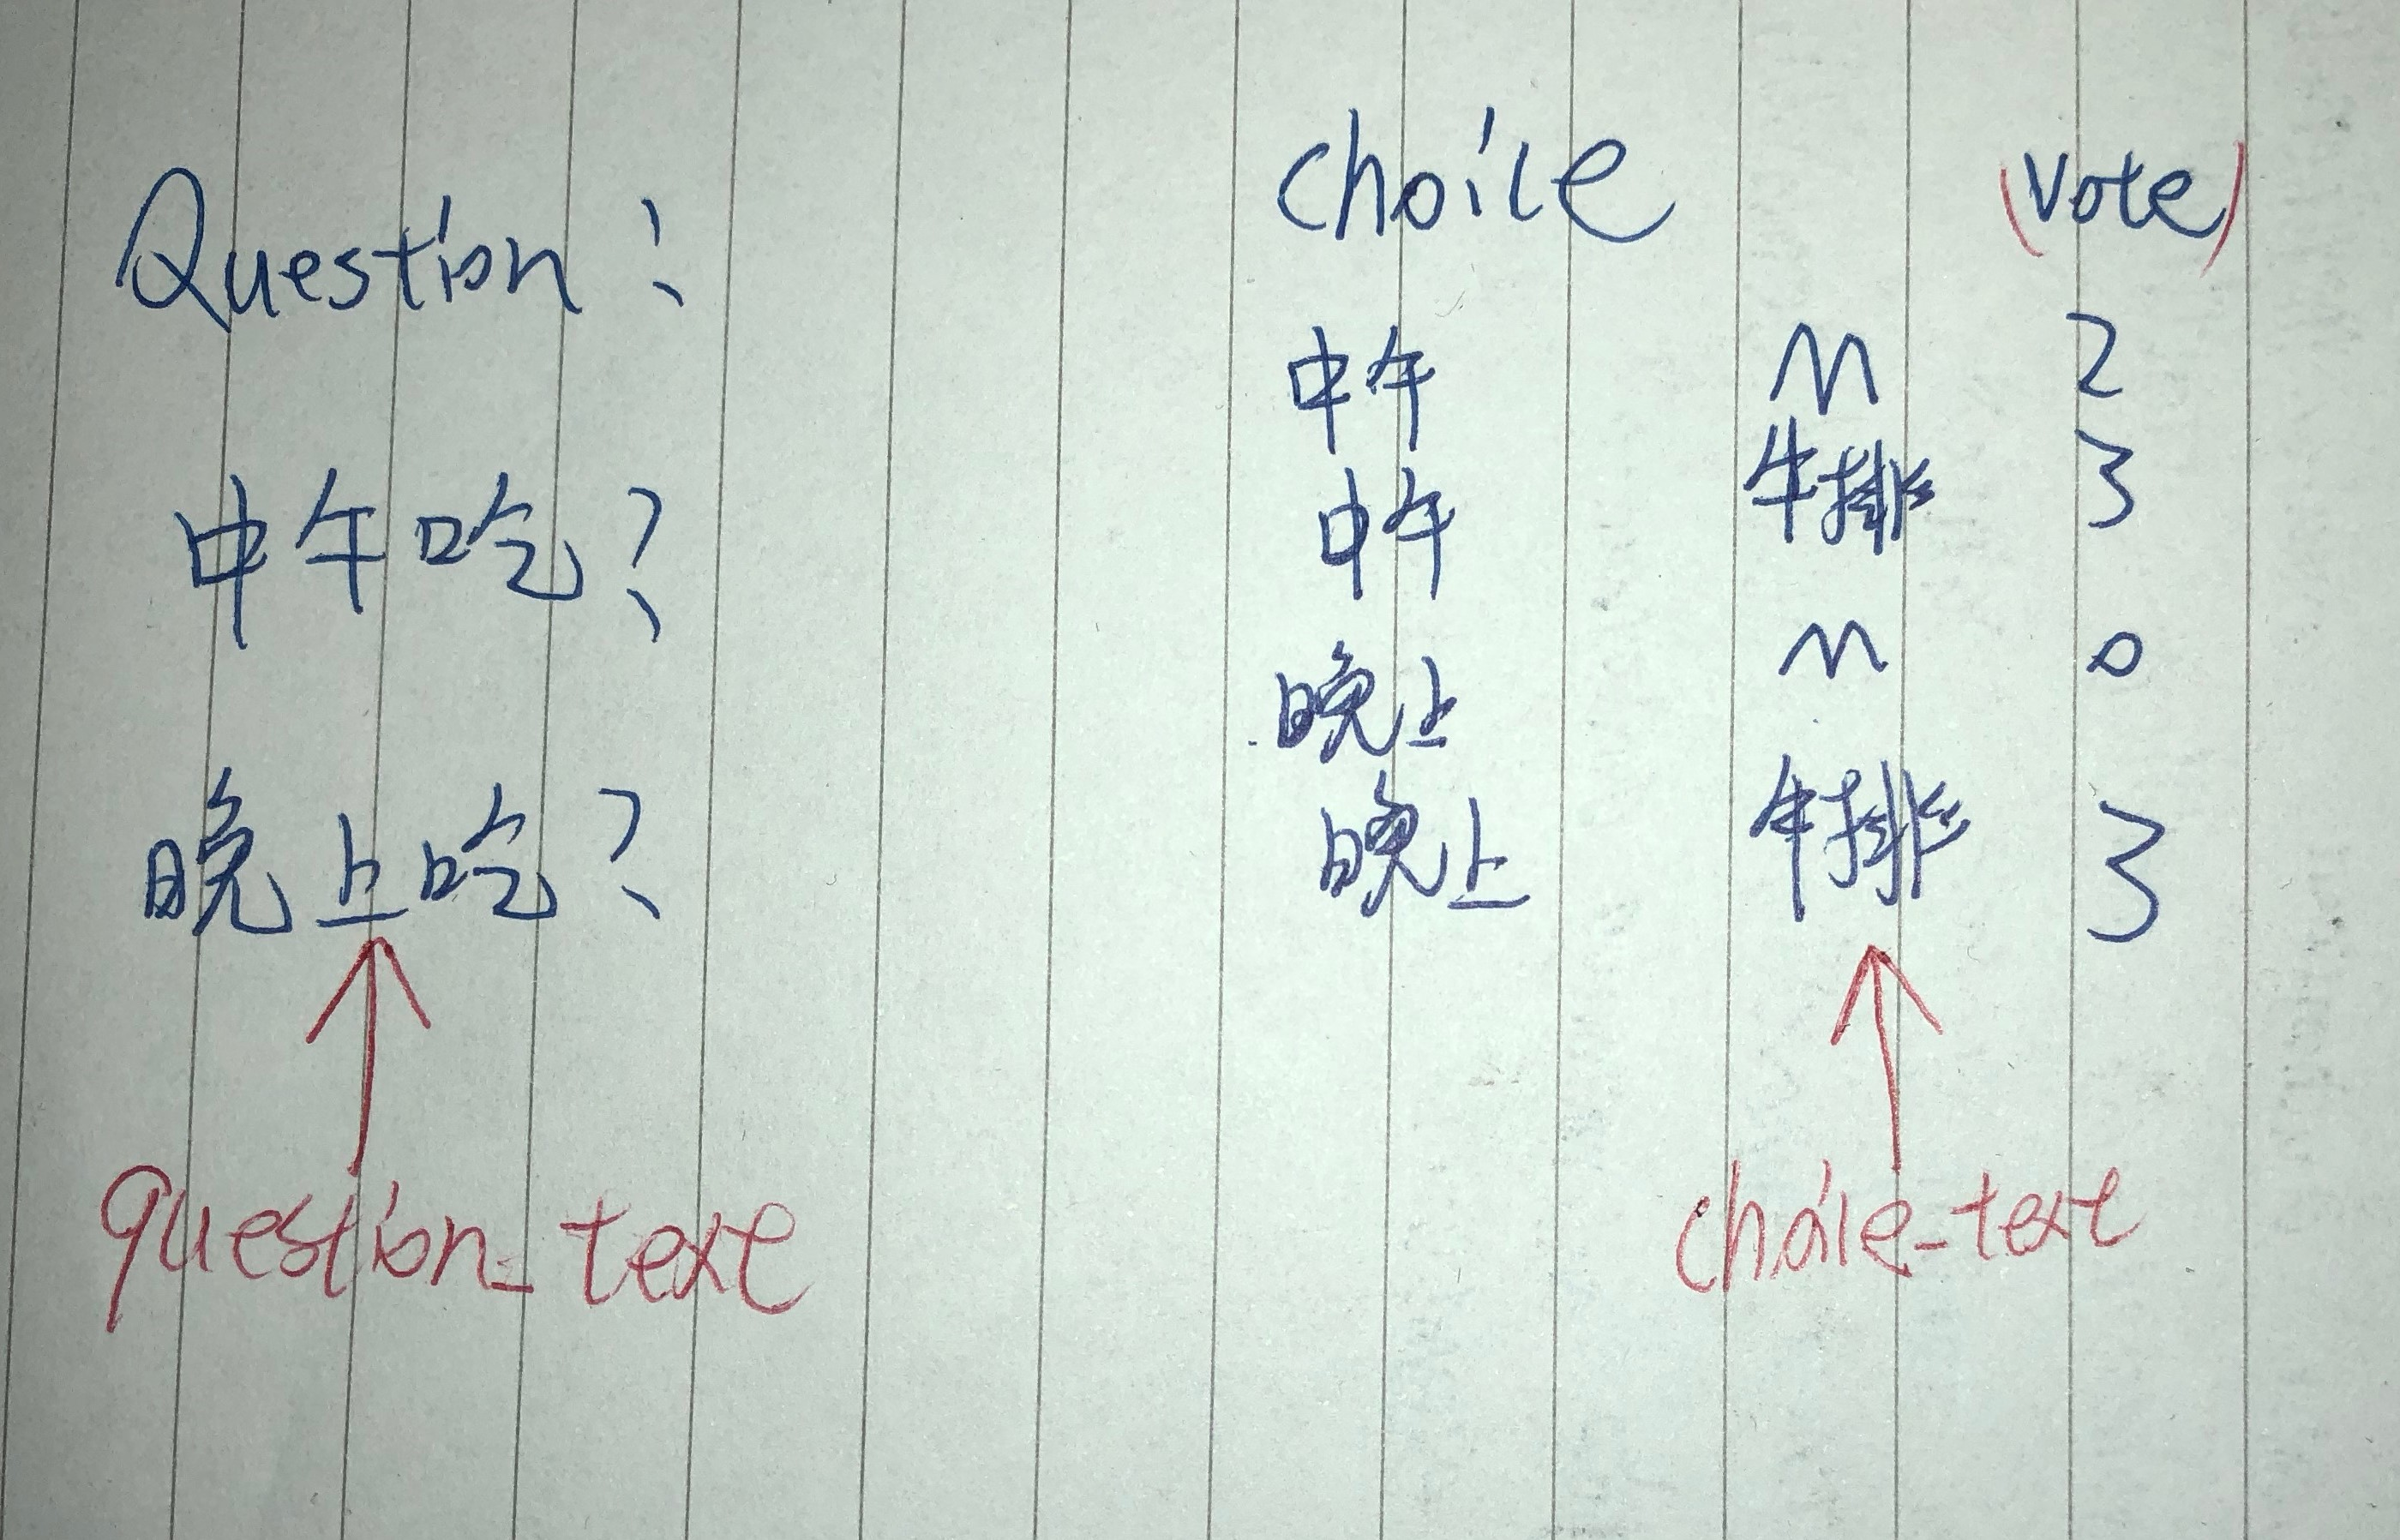 Question:
中午吃?
晚上吃?
question_text
choice (vote)
中午 M 2
中午 牛排 3
晚上 M 0
晚上 牛排 3
choice_text